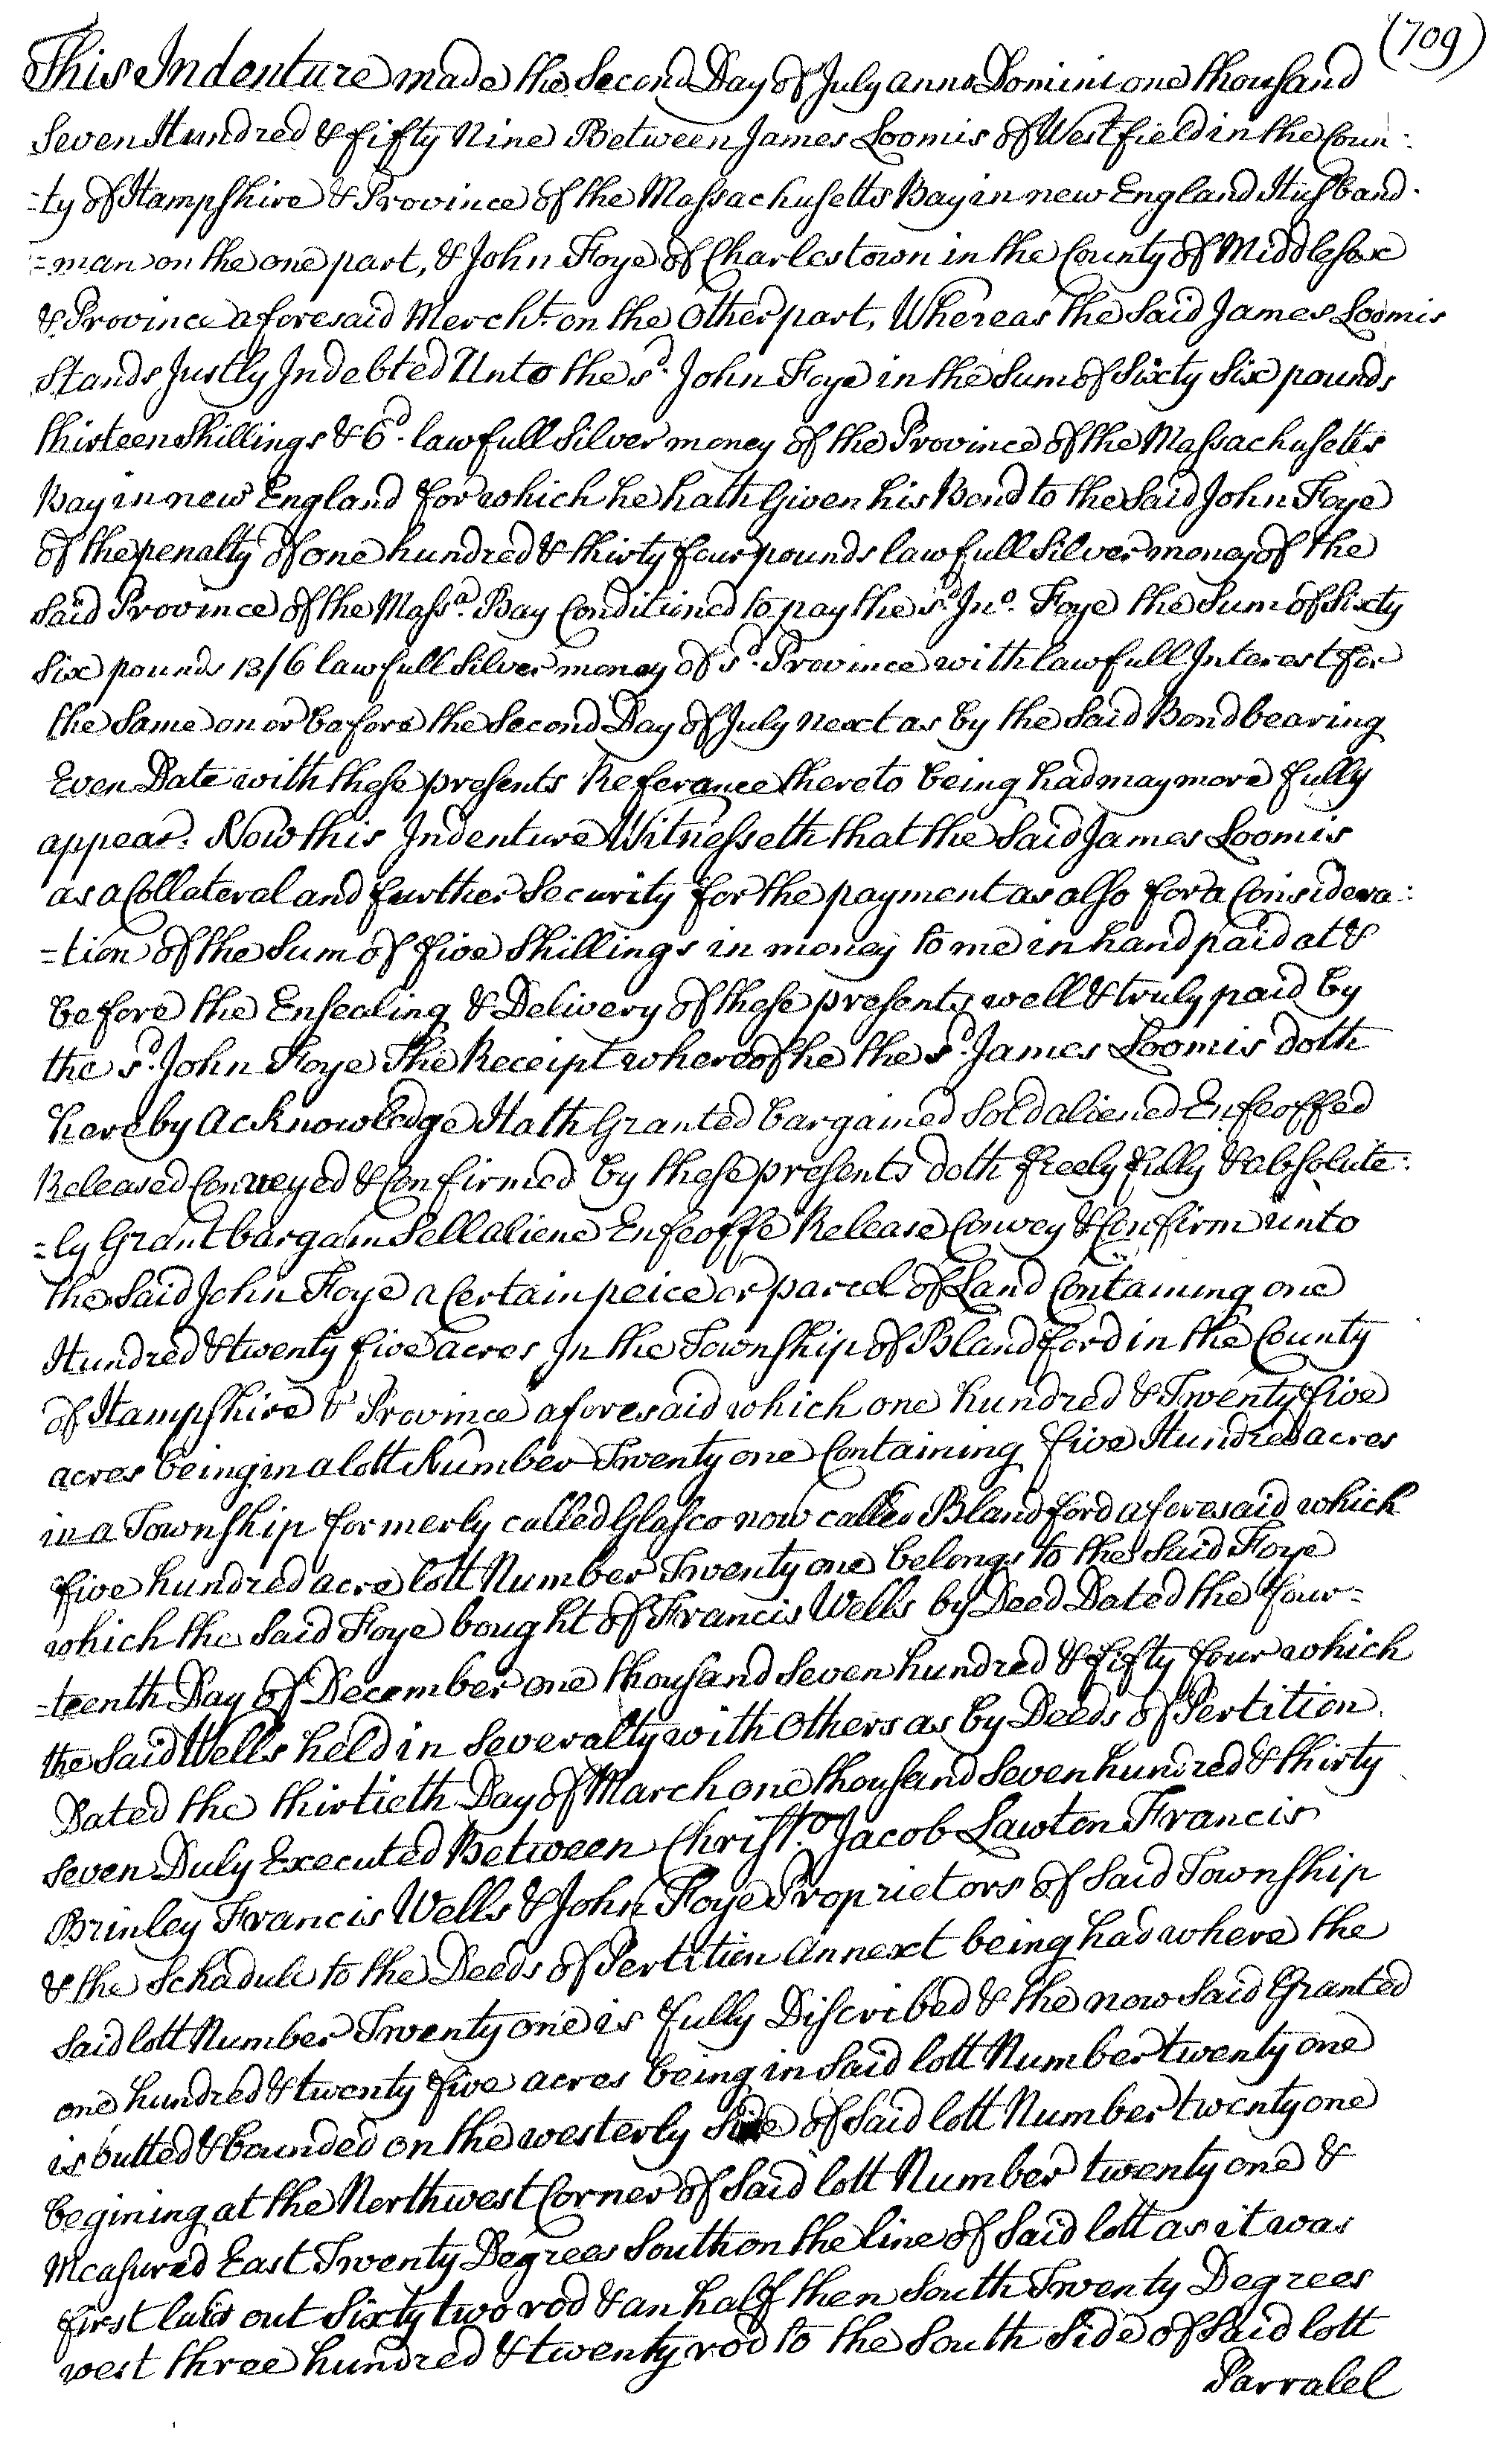 (709)
This Indenture made the Second Day of July anno Domini one thousand
Seven Hundred & fifty Nine Between James Loomis of Westfield in the Coun:
-ty of Hampshire & Province of the Massachusetts Bay in new England Husband-
=man on the one part, & John Foye of Charlestown in the County of Middlesex
& Province aforesaid Mercht. on the Other part, Whereas the Said James Loomis
Stands Justly Indebted Unto the sd. John Foye in the Sum of Sixty Six pounds
thirteen Shillings & 6d. lawfull Silver money of the Province of the Massachusetts
Bay in new England for which he hath Given his Bond to the Said John Foye
of the penalty of one hundred & thirty four pounds lawfull Silver money of the
Said Province of the Massa. Bay Conditioned to pay the sd. Jno. Foye the Sum of Sixty
Six pounds 13/6 lawfull Silver money of sd. Province with lawfull Interest for
the Same on or before the Second Day of July next as by the Said Bond bearing
Even Date with these presents Referance thereto being had may more fully
appear. Now this Indenture Witnesseth that the Said James Loomis
as a Collateral and further Security for the payment as also for a Considera:
=tion of the Sum of five Shillings in money to me in hand paid at &
before the Ensealing & Delivery of these presents well & truly paid by
the sd. John Foye The Receipt whereof he the sd. James Loomis doth
hereby Acknowledge Hath Granted bargained Sold aliened Enfeoffed
Released Conveyed & Confirmed by these presents doth freely fully & absolute:
=ly Grant bargain Sell aliene Enfeoffe Release Convey & Confirm unto
the Said John Foye a Certain peice or parcel of Land Containing one
Hundred & twenty five acres In the Township of Blandford in the County
of Hampshire & Province aforesaid which one hundred & Twenty five
acres being in a lott Number Twenty one Containing five Hundred acres
in a Township formerly called Glasco now called Blandford aforesaid which
five hundred acre lott Number Twenty one belongs to the Said Foye
which the Said Foye bought of Francis Wells by Deed Dated the four=
-teenth Day of December one thousand Seven hundred & fifty four which
the Said Wells held in Severalty with Others as by Deeds of Pertition
Dated the thirtieth Day of March one thousand Seven hundred & thirty
Seven Duly Executed Between Christo. Jacob Lawton Francis
Brinley Francis Wells & John Foye Proprietors of Said Township
& the Schadule to the Deeds of Pertition annext being had where the
Said lott Number Twenty one is fully Discribed & the now Said Granted
one hundred & twenty five acres being in Said lott Number twenty one
is butted & bounded on the westerly Side of Said lott Number twenty one
begining at the Northwest Corner of Said lott Number twenty one &
Measured East Twenty Degrees South on the line of Said lott as it was
first laid out Sixty two rod & an half then South Twenty Degrees
west three hundred & twenty rod to the South Side of Said lott
Parralel